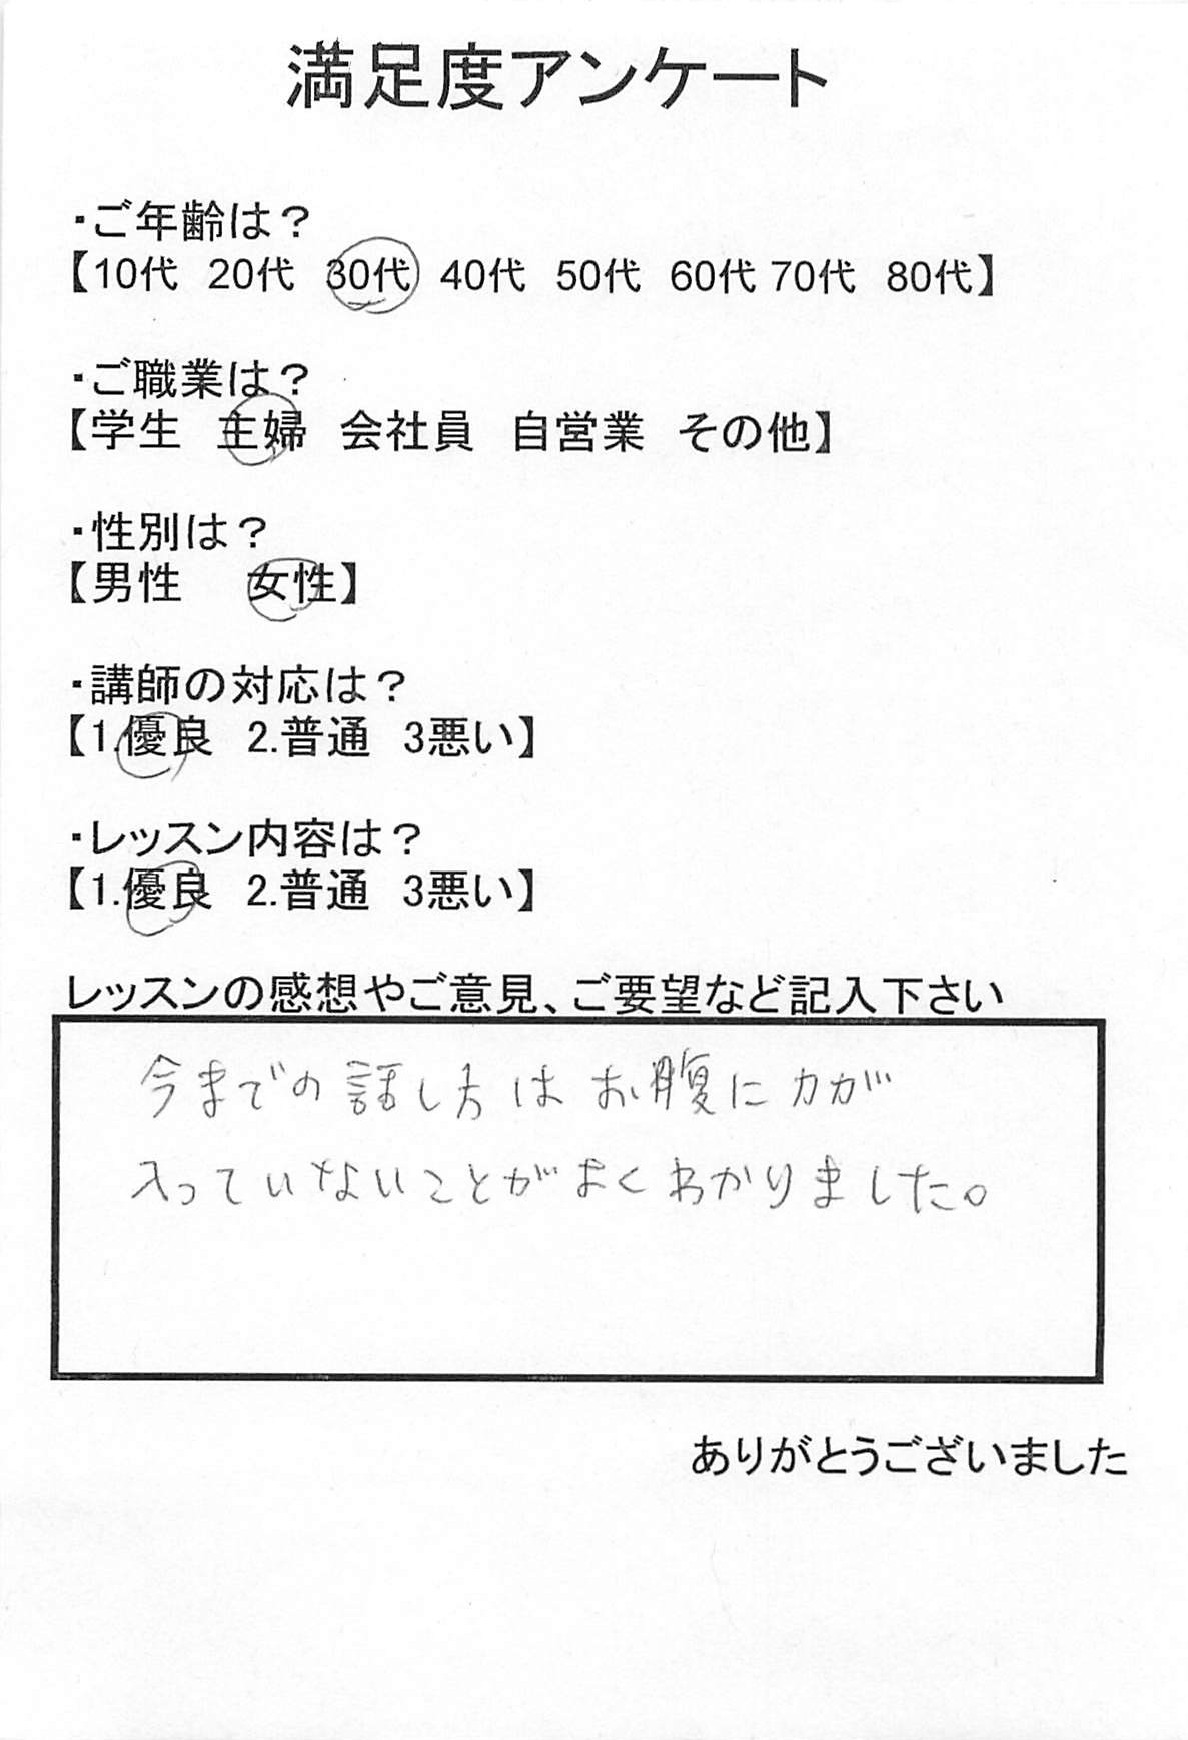 満足度アンケート
・ご年齢は？
【10代 20代 30代 40代 50代 60代 70代 80代】
・ご職業は？
【学生 主婦 会社員 自営業 その他】
・性別は？
【男性 女性】
・講師の対応は？
【1.優良 2.普通 3悪い】
・レッスン内容は？
【1.優良 2.普通 3悪い】
レッスンの感想やご意見、ご要望など記入下さい
今までの話し方はお腹に力が
入っていないことがよくわかりました。
ありがとうございました